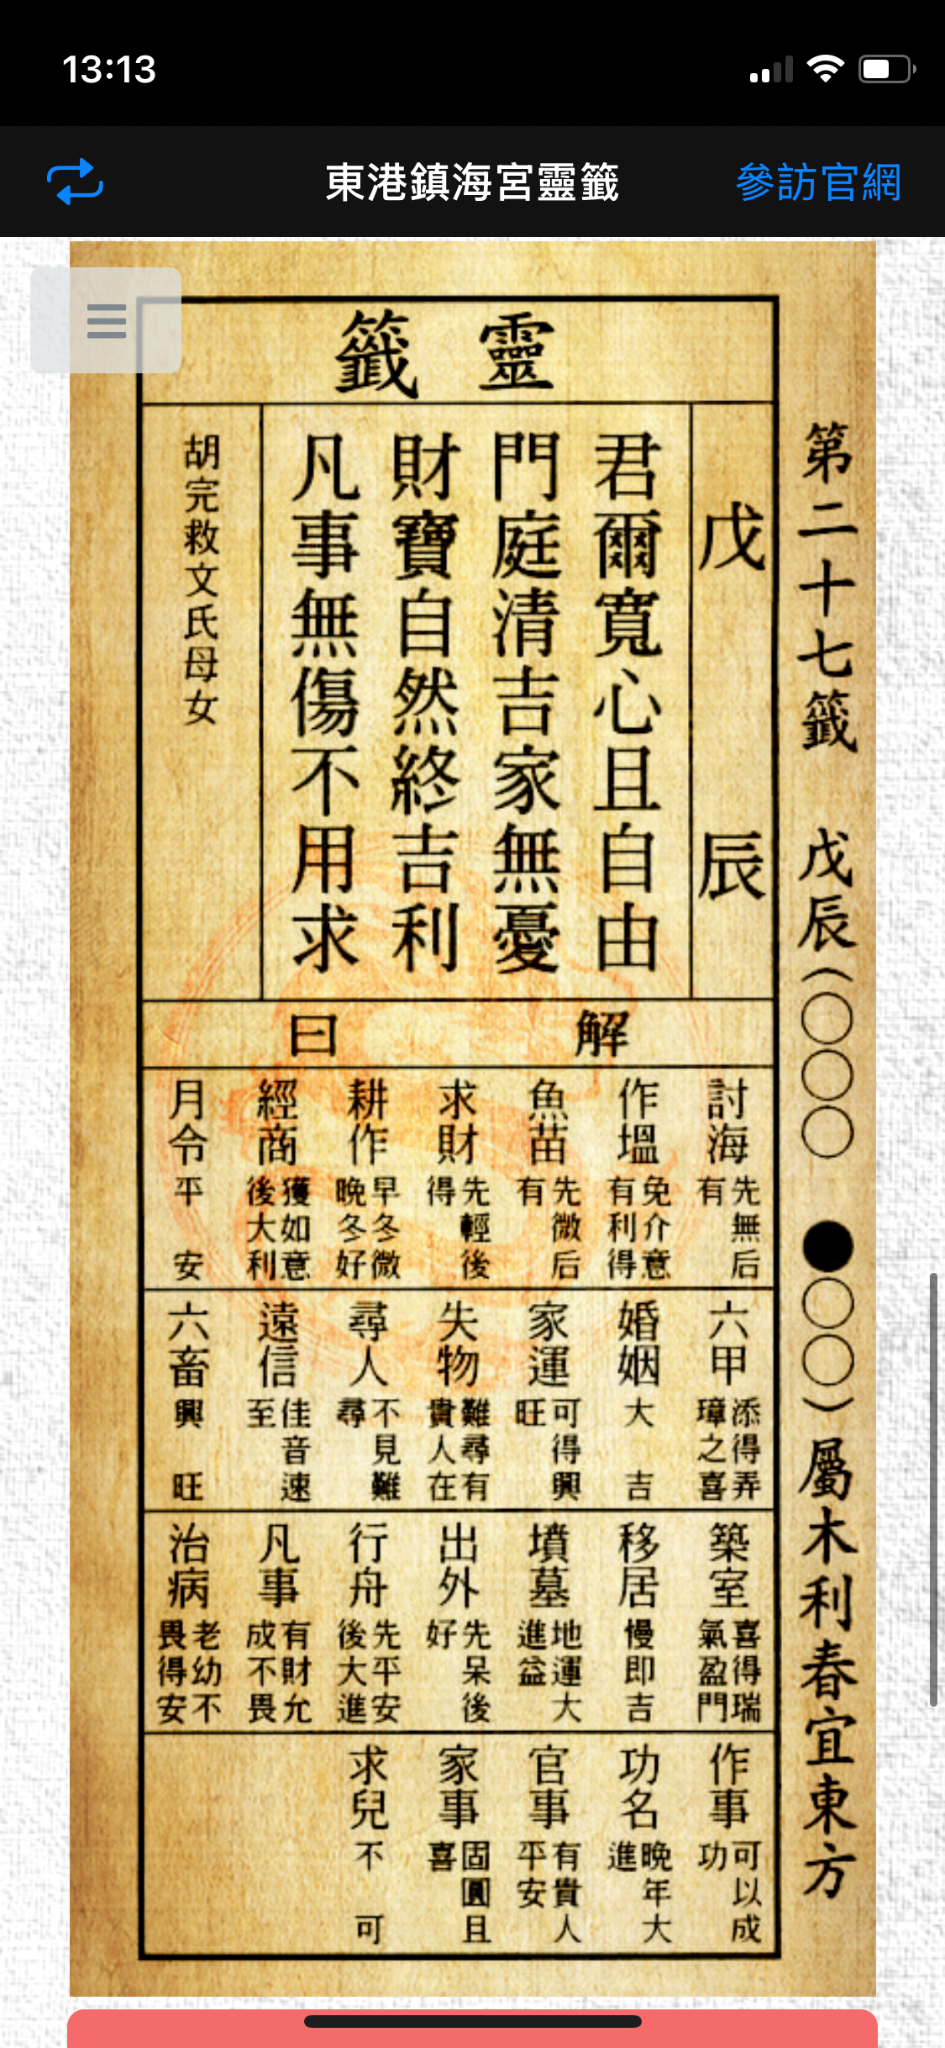 13:13
東港鎮海宮靈籤
參訪官網
第二十七籤 戊辰(○○○ ●○○)屬木利春宜東方
靈籤
戊辰
君爾寬心且自由
門庭清吉家無憂
財寶自然終吉利
凡事無傷不用求
胡完救文氏母女
解曰
討海 先無后有
作塭 免介意有利得
魚苗 先微后有
求財 先輕後得
耕作 早冬微晚冬好
經商 獲如意後大利
月令 平安
六甲 添得弄璋之喜
婚姻 大吉
家運 可得興旺
失物 難尋有貴人在
尋人 不見難尋
遠信 佳音速至
六畜 興旺
築室 喜得瑞氣盈門
移居 慢即吉
墳墓 地運大進益
出外 先呆後好
行舟 先平安後大進
凡事 有財允成不畏
治病 老幼不畏得安
作事 可以成功
功名 晚年大進
官事 有貴人平安
家事 固圓且喜
求兒 不可